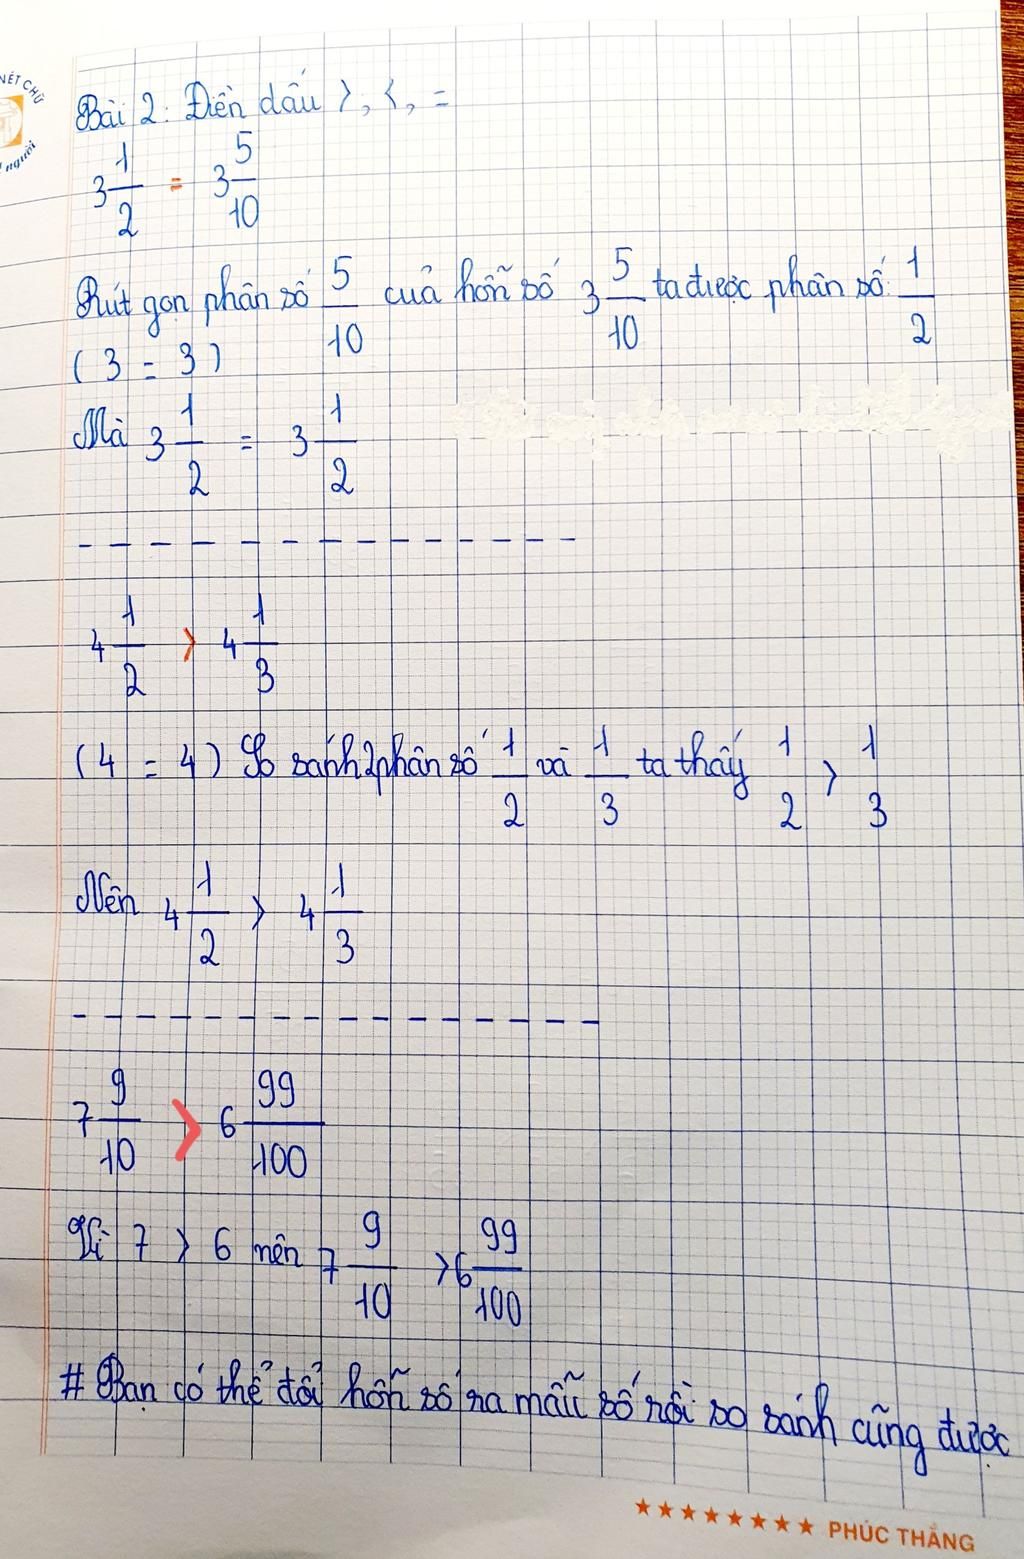 NÉT CHỮ
người
Bài 2: Điền dấu >, <, =
3 1/2 = 3 5/10
Rút gọn phân số 5/10 của hỗn số 3 5/10 ta được phân số 1/2
(3 = 3)
Mà 3 1/2 = 3 1/2
4 1/2 > 4 1/3
(4 = 4) So sánh 2 phân số 1/2 và 1/3 ta thấy 1/2 > 1/3
Nên 4 1/2 > 4 1/3
7 9/10 > 6 99/100
Vì 7 > 6 nên 7 9/10 > 6 99/100
# Bạn có thể đổi hỗn số ra mẫu số rồi so sánh cũng được
★★★★★★★★ PHÚC THẮNG